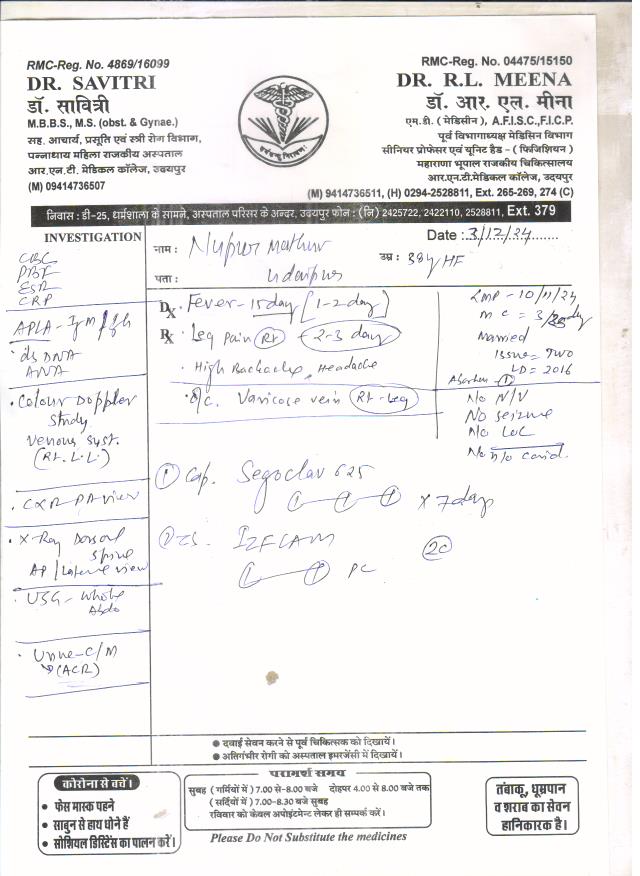 RMC-Reg. No. 4869/16099
DR. SAVITRI
डॉ. सावित्री
M.B.B.S., M.S. (obst. & Gynae.)
सह. आचार्य, प्रसूति एवं स्त्री रोग विभाग,
पन्नाधाय महिला राजकीय अस्पताल
आर.एन.टी. मेडिकल कॉलेज, उदयपुर
(M) 09414736507
RMC-Reg. No. 04475/15150
DR. R.L. MEENA
डॉ. आर. एल. मीना
एम.डी. ( मेडिसीन ), A.F.I.S.C.,F.I.C.P.
पूर्व विभागाध्यक्ष मेडिसिन विभाग
सीनियर प्रोफेसर एवं यूनिट हैड - ( फिजिशियन )
महाराणा भूपाल राजकीय चिकित्सालय
आर.एन.टी.मेडिकल कॉलेज, उदयपुर
(M) 9414736511, (H) 0294-2528811, Ext. 265-269, 274 (C)
निवास : डी-25, धर्मशाला के सामने, अस्पताल परिसर के अन्दर, उदयपुर फोन : (नि) 2425722, 2422110, 2528811, Ext. 379
INVESTIGATION
CBC
PBF
ESR
CRP
APLA - IgM / IgG
ds DNA
ANA
Colour Doppler
Study
Venous Syst.
(Rt. L.L.)
CXR PA view
X-Ray Dorsal
Spine
AP / Lateral view
USG - Whole
Abdo
Urine - C/M
(ACR)
नाम : Nupur Mathur
Date : 3/12/24
पता : Udaipur
उम्र : 38y HF
Dx Fever - 15 day [1-2 day]
Rx Leg Pain (Rt) - 2-3 day
High Backache, Headache
Varicose vein (Rt-Leg)
LMP - 10/11/24
MC = 3/
Married
Issue = Two
LD = 2016
Abortion - 1
No N/V
No seizure
No LOC
No h/o covid.
① Cap. Segoclav 625
x 7 day
②
PC
● दवाई सेवन करने से पूर्व चिकित्सक को दिखायें।
● अतिगंभीर रोगी को अस्पताल इमरजेंसी में दिखायें।
कोरोना से बचें।
● फेस मास्क पहने
● साबुन से हाथ धोने हैं
● सोशियल डिस्टेंस का पालन करें।
परामर्श समय
सुबह ( गर्मियों में ) 7.00 से-8.00 बजे दोहपर 4.00 से 8.00 बजे तक
( सर्दियों में ) 7.00-8.30 बजे सुबह
रविवार को केवल अपोइंटमेन्ट लेकर ही सम्पर्क करें।
Please Do Not Substitute the medicines
तंबाकू, धूम्रपान
व शराब का सेवन
हानिकारक है।